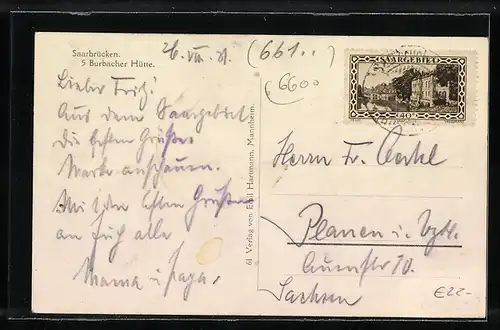 Saarbrücken.
5 Burbacher Hütte.
26. VII. 31.
(661..)
(6600
SAARGEBIET
40
Lieber Fritz!
Aus dem Saargebiet
die besten Grüße.
Marke anschauen.
Mit den besten Grüßen
an Euch alle
Mama u. Papa.
61 Verlag von Emil Hartmann, Mannheim.
Herrn Fr. Oertel
Plauen i. Vgtl.
Auenstr. 10.
Sachsen
€22-